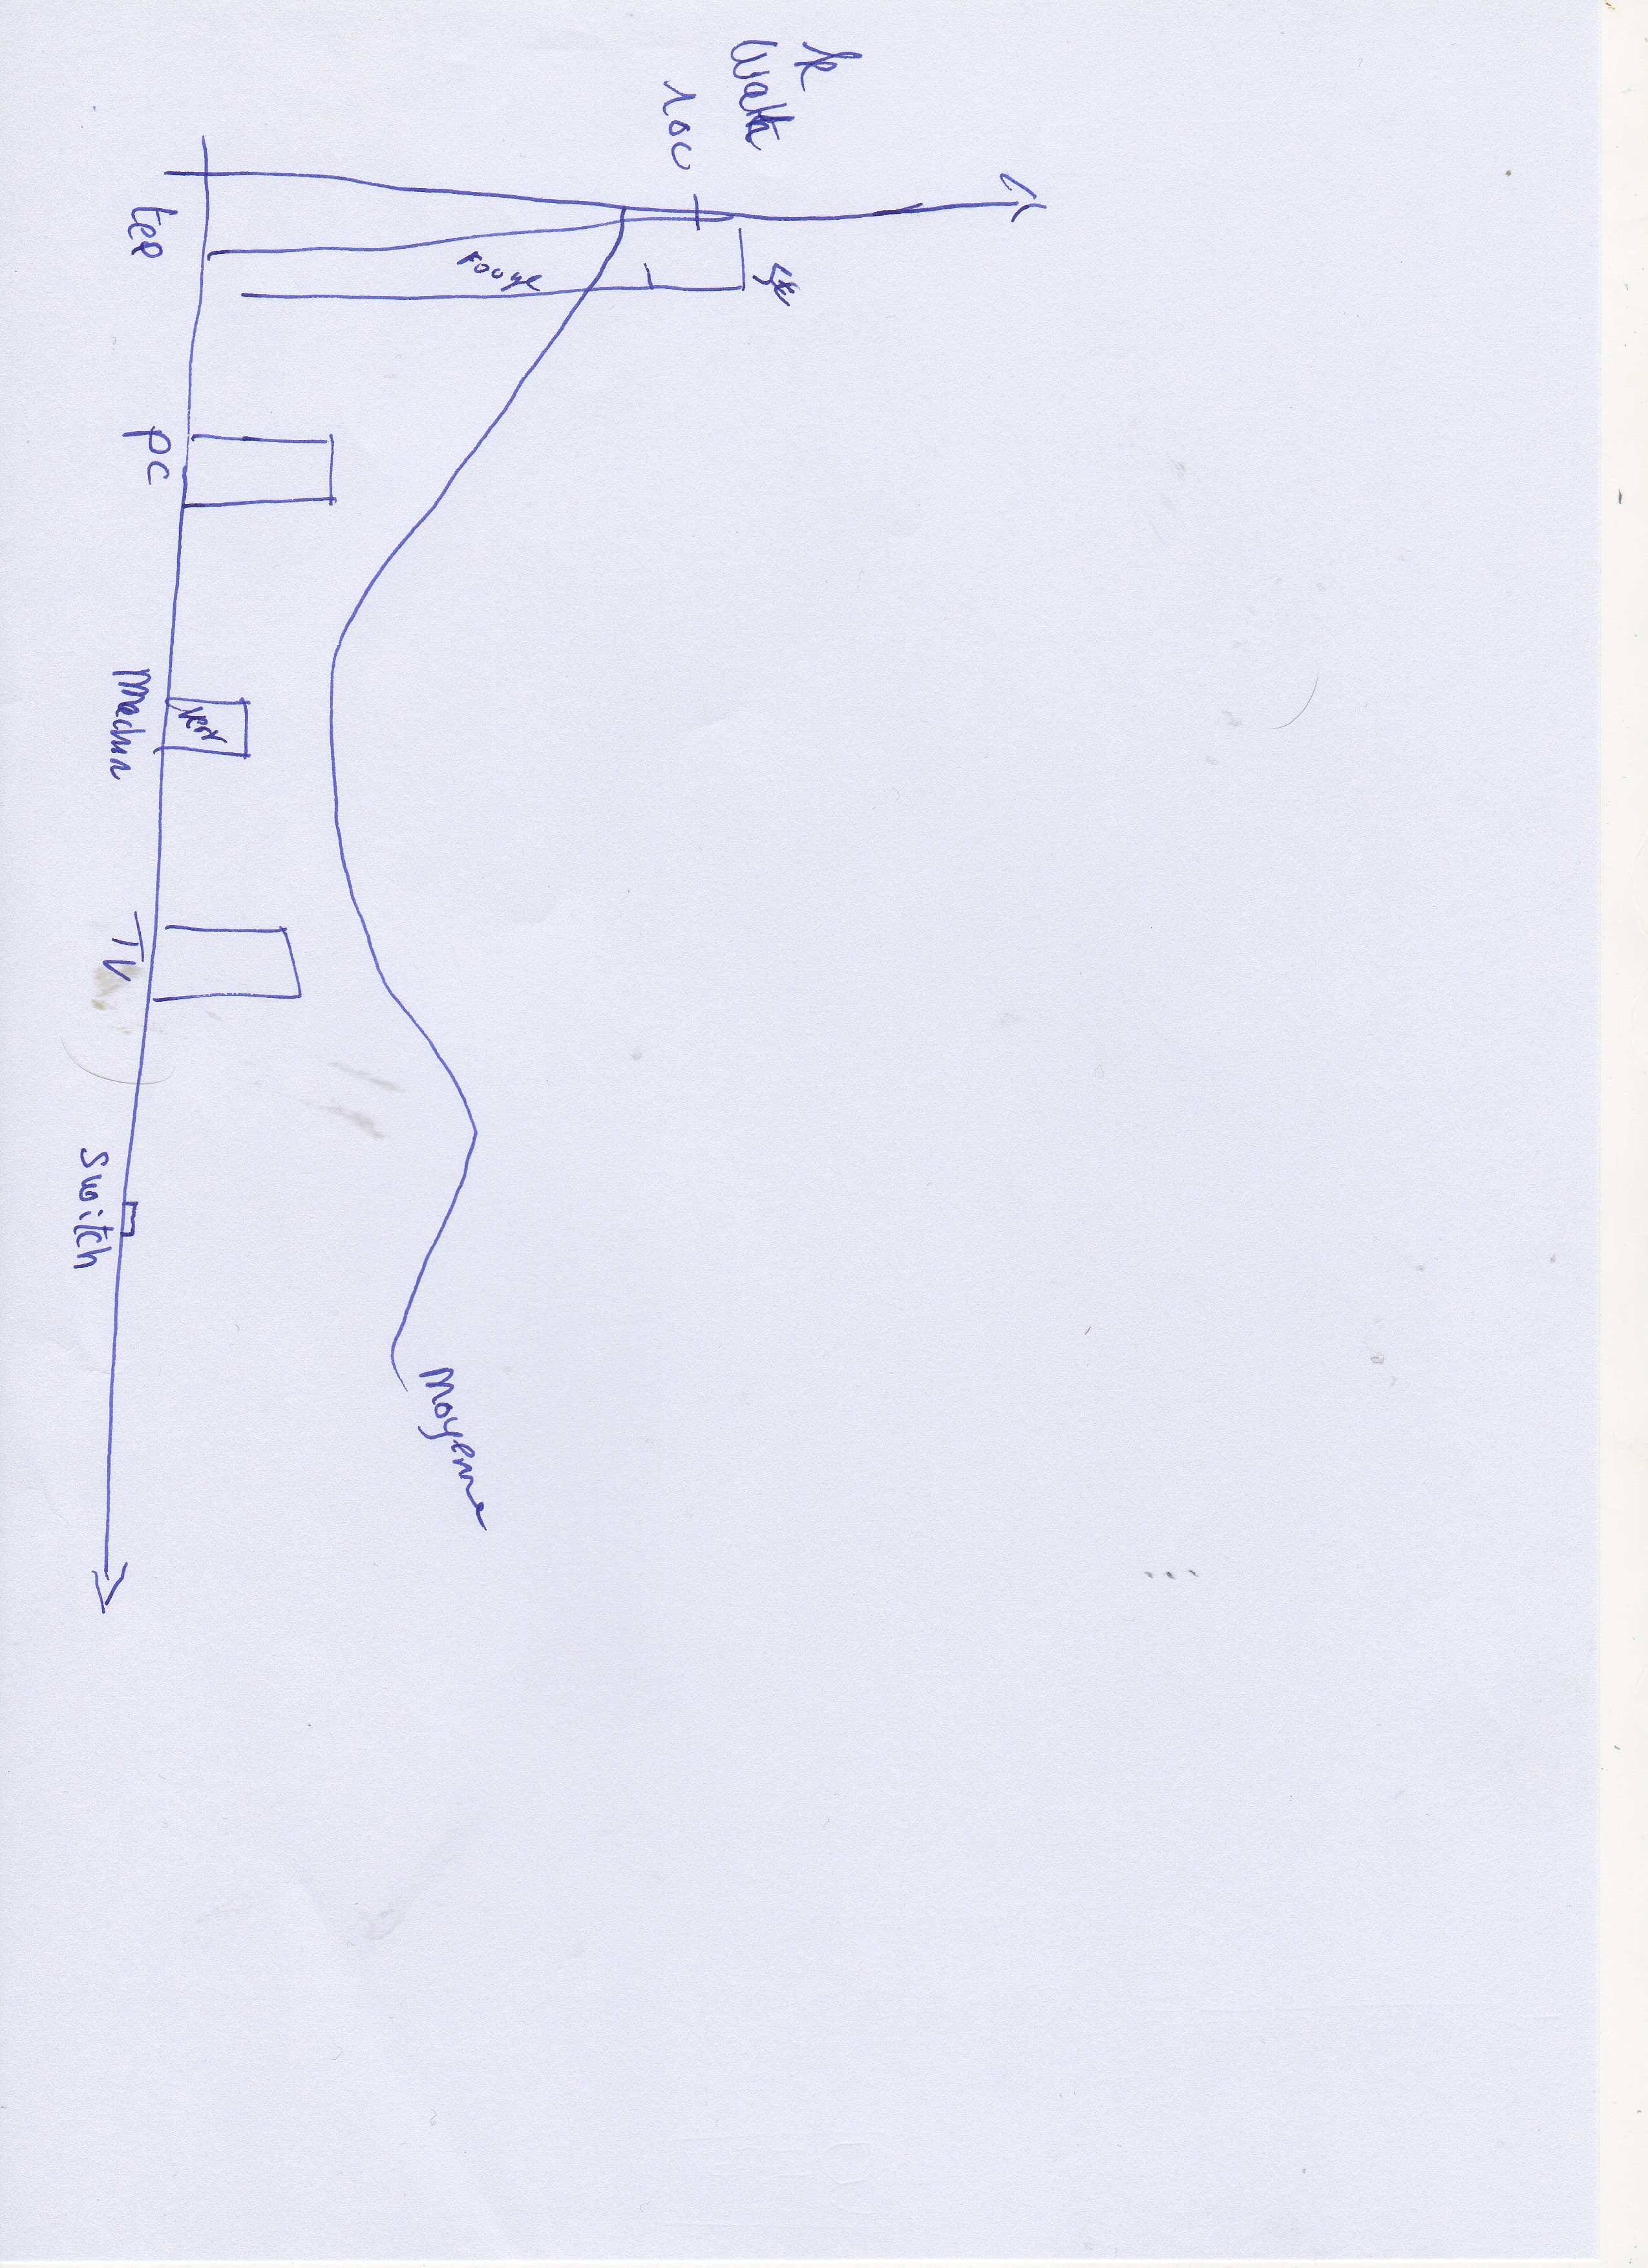 k
Watt
5€
100
rouge
Moyenne
vert
tel
pc
Machin
TV
switch